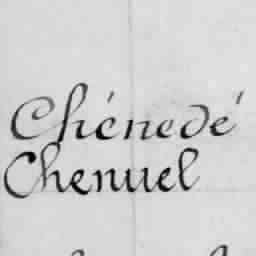 Chénedé
Chenuel